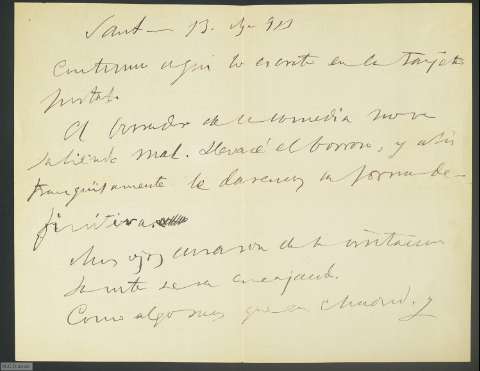 Sant 13. Ag 911
Continuo aqui lo escrito en la tarjeta
postal.
El borrador de la comedia no va
saliendo mal. Llevaré el borron, y ahi
tranquilamente le daremos la forma de-
finitiva.
Mis ojos curaron de la irritacion
La se va
Como algo mas que en Madrid, y